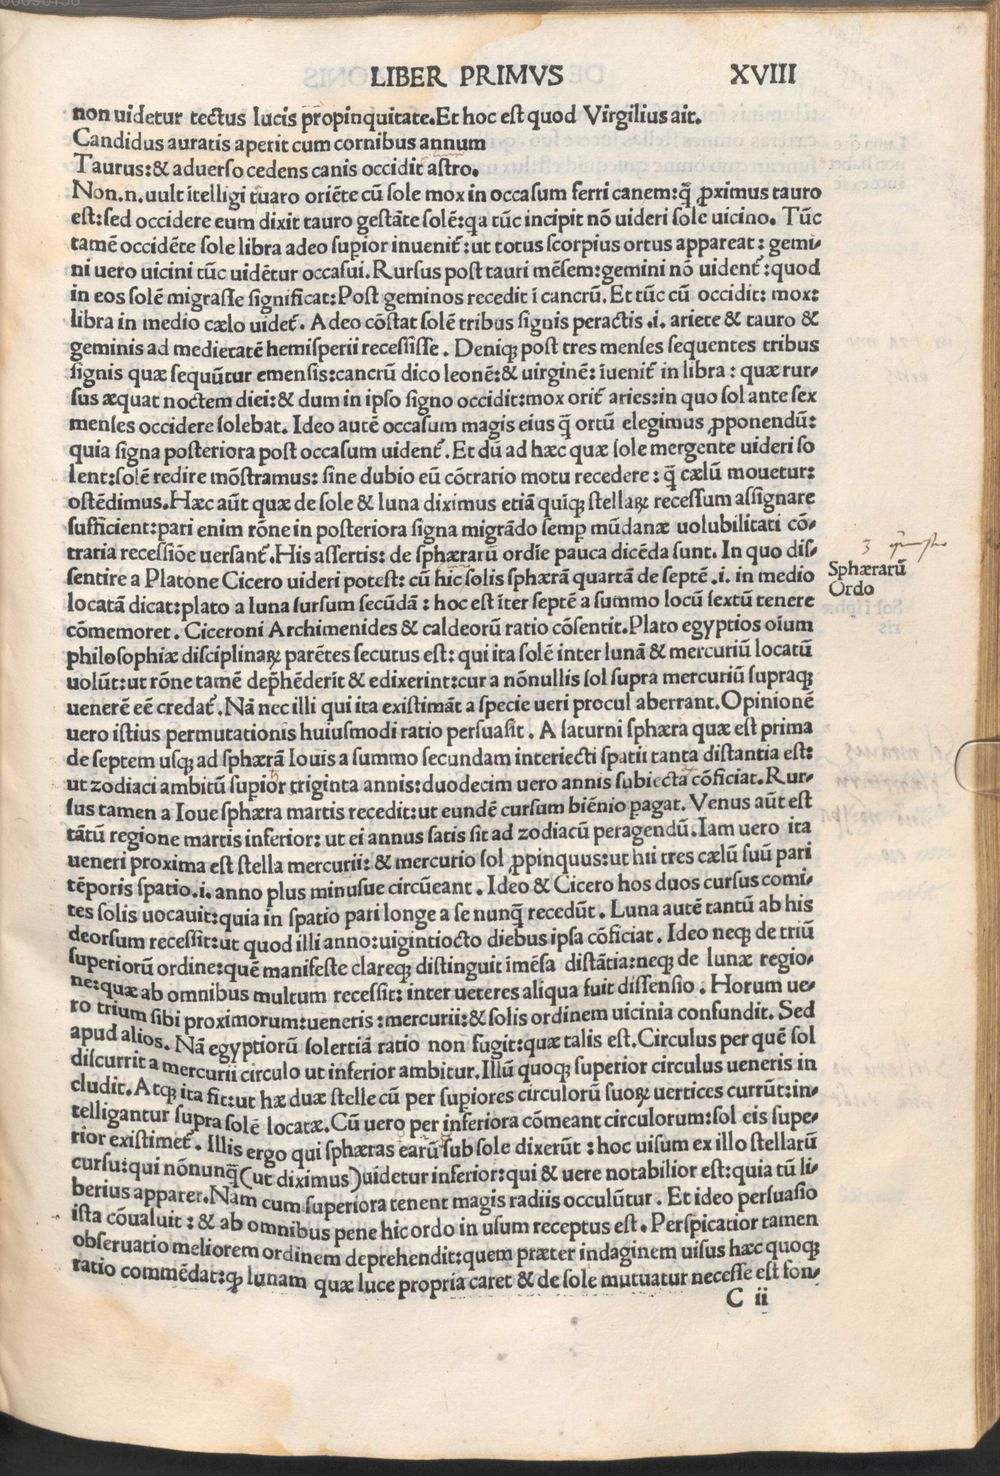 LIBER PRIMVS XVIII
non uidetur tectus lucis propinquitate. Et hoc est quod Virgilius ait.
Candidus auratis aperit cum cornibus annum
Taurus: & aduerso cedens canis occidit astro.
Non. n. uult ītelligi tauro oriēte cū sole mox in occasum ferri canem: q̄ ꝓximus tauro
est: sed occidere eum dixit tauro gestāte solē: qa tūc incipit nō uideri sole uicino. Tūc
tamē occidēte sole libra adeo supior inuenit᷑: ut totus scorpius ortus appareat: gemi-
ni uero uicini tūc uidētur occasui. Rursus post tauri mēsem: gemini nō uident᷑: quod
in eos solē migrasse significat: Post geminos recedit ī cancrū. Et tūc cū occidit: mox:
libra in medio cælo uidet᷑. Adeo cōstat solē tribus signis peractis .i. ariete & tauro &
geminis ad medietatē hemisperii recessisse. Deniqꝫ post tres menses sequentes tribus
signis quæ sequūtur emensis: cancrū dico leonē: & uirginē: īuenit᷑ in libra: quæ rur-
sus æquat noctem diei: & dum in ipso signo occidit: mox orit᷑ aries: in quo sol ante sex
menses occidere solebat. Ideo autē occasum magis eius q̄ ortū elegimus ꝓponendū:
quia signa posteriora post occasum uident᷑. Et dū ad hæc quæ sole mergente uideri so
lent: solē redire mōstramus: sine dubio eū cōtrario motu recedere: q̄ cælū mouetur:
ostēdimus. Hæc aūt quæ de sole & luna diximus etiā quīqꝫ stellaꝝ recessum assignare
sufficient: pari enim rōne in posteriora signa migrādo semp mūdanæ uolubilitati cō-
traria recessiōe uersant᷑. His assertis: de sphærarū ordīe pauca dicēda sunt. In quo dis-
sentire a Platone Cicero uideri potest: cū hic solis sphærā quartā de septē .i. in medio
locatā dicat: plato a luna sursum secūdā: hoc est īter septē a summo locū sextū tenere
cōmemoret. Ciceroni Archimenides & caldeorū ratio cōsentit. Plato egyptios oīum
philosophiæ disciplinaꝝ parētes secutus est: qui ita solē inter lunā & mercuriū locatū
uolūt: ut rōne tamē dep̄hēderit & edixerint: cur a nōnullis sol supra mercuriū supraqꝫ
uenerē eē credat᷑. Nā nec illi qui ita existimāt a specie ueri procul aberrant. Opinionē
uero istius permutationis huiusmodi ratio persuasit. A saturni sphæra quæ est prima
de septem usqꝫ ad sphærā Iouis a summo secundam interiecti spatii tanta distantia est:
ut zodiaci ambitū supior triginta annis: duodecim uero annis subiecta cōficiat. Rur-
sus tamen a Ioue sphæra martis recedit: ut eundē cursum biēnio pagat. Venus aūt est
tātū regione martis inferior: ut ei annus satis sit ad zodiacū peragendū. Iam uero ita
ueneri proxima est stella mercurii: & mercurio sol ꝓpinquus: ut hii tres cælū suū pari
tēporis spatio .i. anno plus minusue circūeant. Ideo & Cicero hos duos cursus comi-
tes solis uocauit: quia in spatio pari longe a se nunq̄ recedūt. Luna autē tantū ab his
deorsum recessit: ut quod illi anno: uigintiocto diebus ipsa cōficiat. Ideo neqꝫ de triū
superiorū ordine: quē manifeste clareqꝫ distinguit īmēsa distātia: neqꝫ de lunæ regio-
ne: quæ ab omnibus multum recessit: inter ueteres aliqua fuit dissensio. Horum ue-
ro trium sibi proximorum: ueneris: mercurii: & solis ordinem uicinia confundit. Sed
apud alios. Nā egyptiorū solertiā ratio non fugit: quæ talis est. Circulus per quē sol
discurrit a mercurii circulo ut inferior ambitur. Illū quoqꝫ superior circulus ueneris in
cludit. Atqꝫ ita fit: ut hæ duæ stelle cū per supiores circulorū suoꝝ uertices currūt: in-
telligantur supra solē locatæ. Cū uero per inferiora cōmeant circulorum: sol eis supe-
rior existimet᷑. Illis ergo qui sphæras earū sub sole dixerūt: hoc uisum ex illo stellarū
cursu: qui nōnunq̄ (ut diximus) uidetur inferior: qui & uere notabilior est: quia tū li-
berius apparet. Nam cum superiora tenent magis radiis occulūtur. Et ideo persuasio
ista cōualuit: & ab omnibus pene hic ordo in usum receptus est. Perspicatior tamen
obseruatio meliorem ordinem deprehendit: quem præter indaginem uisus hæc quoqꝫ
ratio commēdat: qꝫ lunam quæ luce propria caret & de sole mutuatur necesse est fon-
C ii
Sphærarū
Ordo